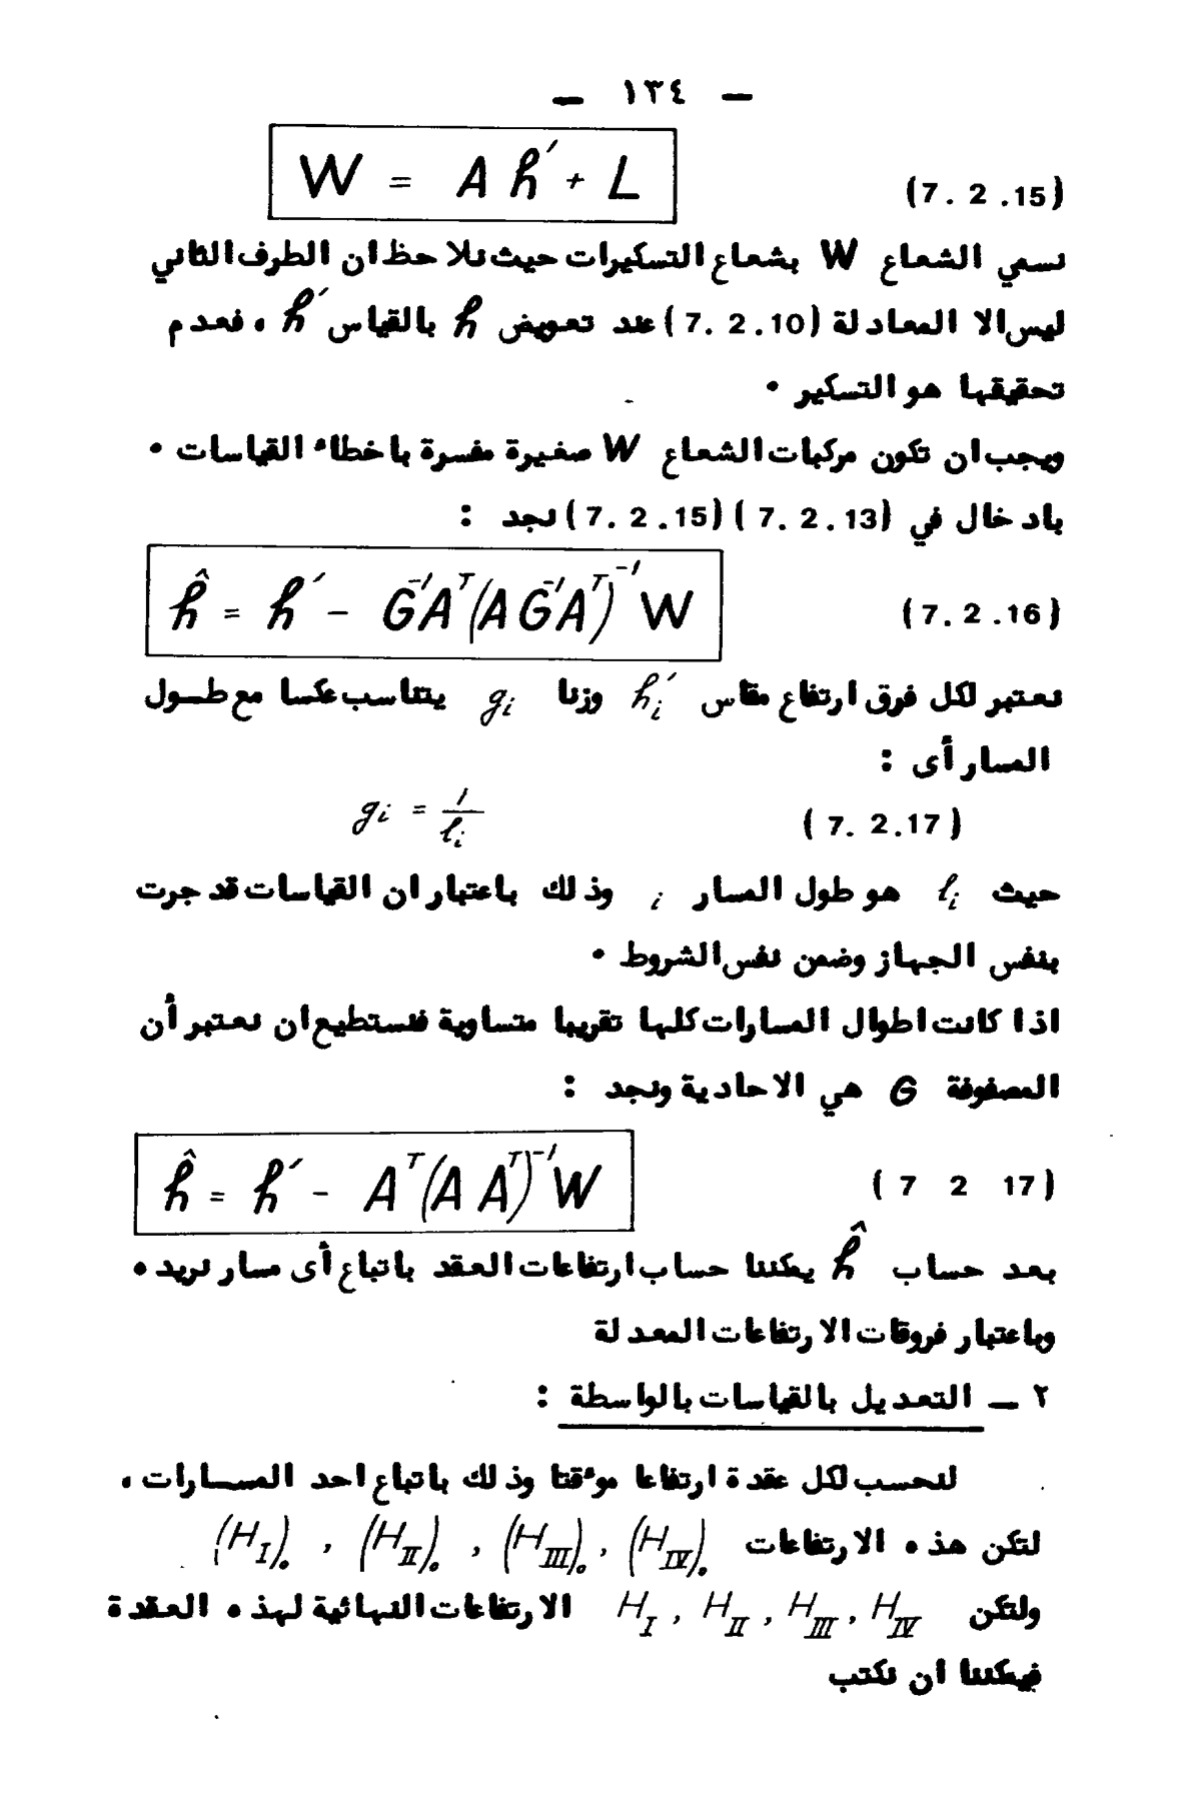 — ١٣٤ —
W = A h′ + L (7. 2 .15)
نسمي الشعاع W بشعاع التسكيرات حيث نلاحظ ان الطرف الثاني
ليس الا المعادلة (7. 2 .10) عند تعويض h بالقياس h′ ، فعدم
تحقيقها هو التسكير •
ويجب ان تكون مركبات الشعاع W صغيرة مفسرة باخطاء القياسات •
بادخال في (7. 2.13) (7. 2 .15) نجد :
ĥ = h′ - G⁻¹Aᵀ(A G⁻¹Aᵀ)⁻¹ W (7. 2 .16)
نعتبر لكل فرق ارتفاع مقاس h′ᵢ وزنا gᵢ يتناسب عكسا مع طـول
المسار أى :
gᵢ = 1/ℓᵢ (7. 2.17)
حيث ℓᵢ هو طول المسار i وذلك باعتبار ان القياسات قد جرت
بنفس الجهاز وضمن نفس الشروط •
اذا كانت اطوال المسارات كلها تقريبا متساوية فنستطيع ان نعتبر أن
المصفوفة G هي الاحادية ونجد :
ĥ = h′ - Aᵀ(A Aᵀ)⁻¹W (7 2 17)
بعد حساب ĥ يمكننا حساب ارتفاعات العقد باتباع أى مسار نريده
وباعتبار فروقات الارتفاعات المعدلة
٢ — التعديل بالقياسات بالواسطة :
لنحسب لكل عقدة ارتفاعا موءقتا وذلك باتباع احد المســارات ،
لتكن هذه الارتفاعات (H_I)₀ , (H_II)₀ , (H_III)₀ , (H_IV)₀
ولتكن H_I , H_II , H_III , H_IV الارتفاعات النهائية لهذه العقدة
فيمكننا ان نكتب